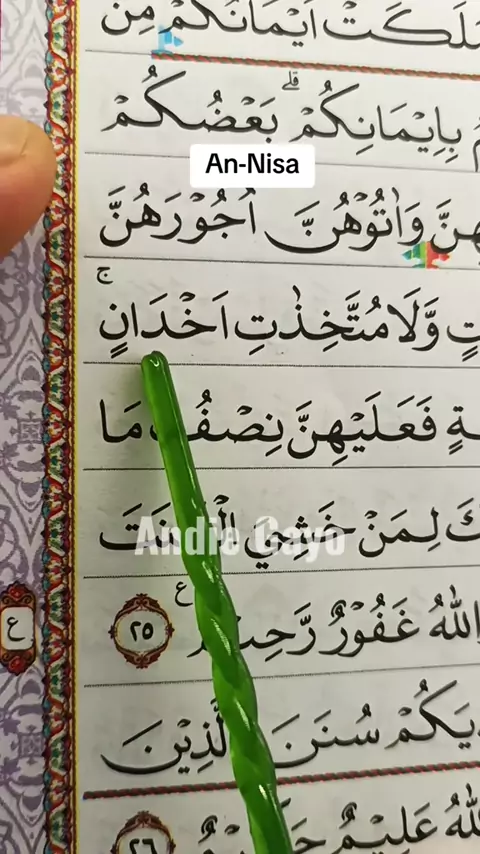 مَلَكَتْ اَيْمَانُكُمْ مِّنْ
بِاِيْمَانِكُمْ ۗ بَعْضُكُمْ
An-Nisa
وَاٰتُوْهُنَّ اُجُوْرَهُنَّ
وَّلَا مُتَّخِذٰتِ اَخْدَانٍ ۚ
فَعَلَيْهِنَّ نِصْفُ مَا
لِمَنْ خَشِيَ
Andie Gayo
اللّٰهُ غَفُوْرٌ رَّحِيْمٌ ࣖ ٢٥
ع
سُنَنَ الَّذِيْنَ
عَلِيْمٌ حَكِيْمٌ ٢٦